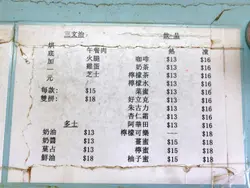 三文治
烘底加一元
午餐肉
火腿
雞蛋
芝士
每款: $15
雙拼: $18
多士
奶油 $13
奶醬 $13
菓占 $13
鮮油 $18
飲品
熱 凍
咖啡 $13 $16
奶茶 $13 $16
檸檬茶 $13 $16
檸檬水 $13 $16
菓蜜 $13 $16
好立克 $13 $16
朱古力 $13 $16
杏仁霜 $13 $16
阿華田 $13 $16
檸檬可樂 $18
薑蜜 $15 $18
檸蜜 $15 $18
柚子蜜 $15 $18